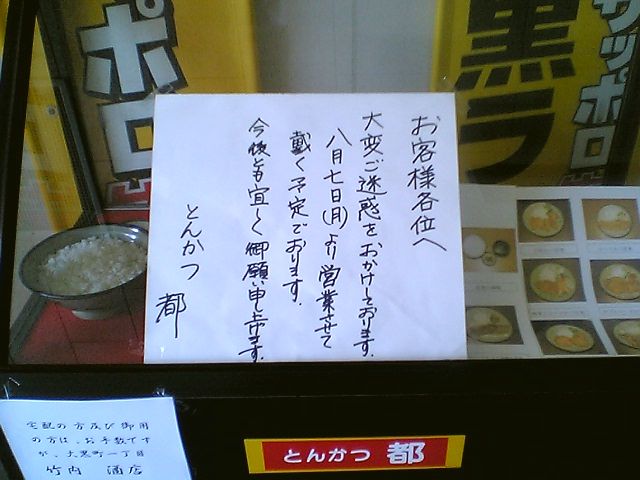 お客様各位へ
大変ご迷惑をおかけしております。
八月七日(月)より営業させて
戴く予定でおります。
今後とも宜しく御願い申し上げます。
とんかつ
都
サッポロ
黒ラ
サッポロ
宅配の方及び御用
の方は、お手数です
が、大黒町一丁目
竹内 酒店
とんかつ 都